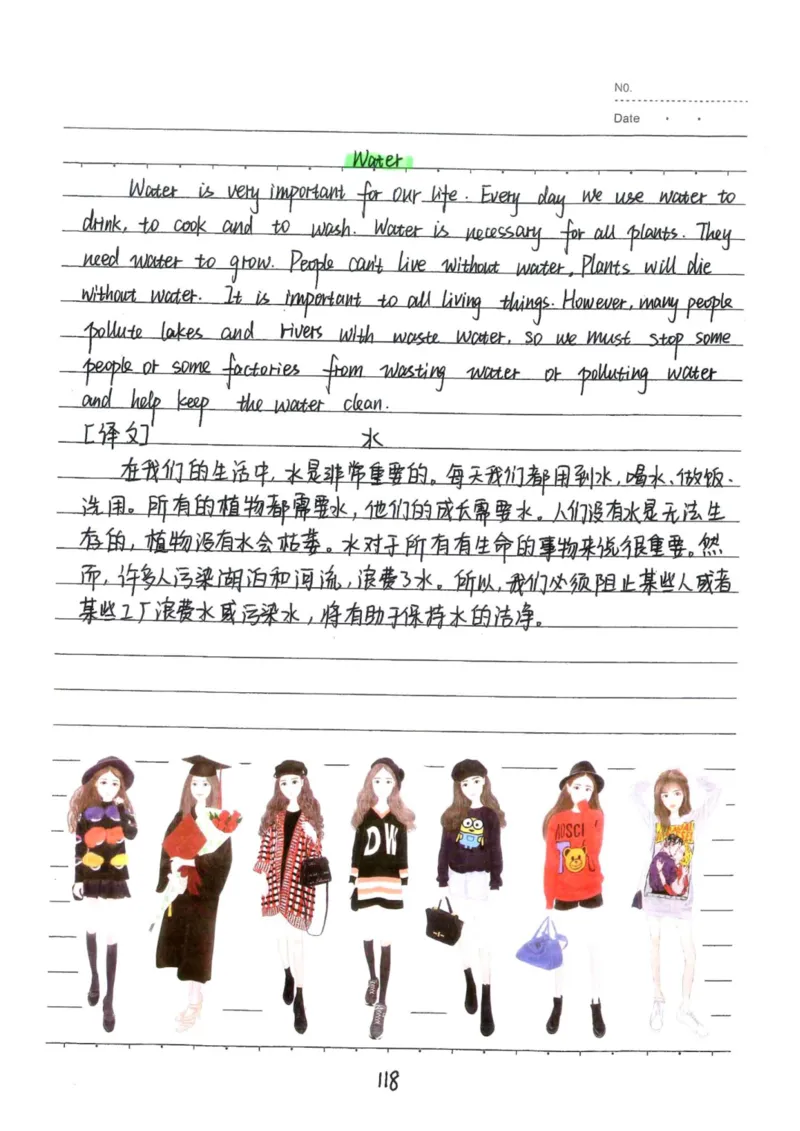 NO.
Date
Water
Water is very important for our life. Every day we use water to
drink, to cook and to wash. Water is necessary for all plants. They
need water to grow. People can't live without water, Plants will die
without water. It is important to all living things. However, many people
pollute lakes and rivers with waste water, so we must stop some
people or some factories from wasting water or polluting water
and help keep the water clean.
[译文] 水
在我们的生活中,水是非常重要的。每天我们都用到水,喝水、做饭、
洗用。所有的植物都需要水,他们的成长需要水。人们没有水是无法生
存的,植物没有水会枯萎。水对于所有有生命的事物来说很重要。然
而,许多人污染湖泊和河流,浪费了水。所以,我们必须阻止某些人或者
某些工厂浪费水或污染水,将有助于保持水的洁净。
DW
MOSCI
118